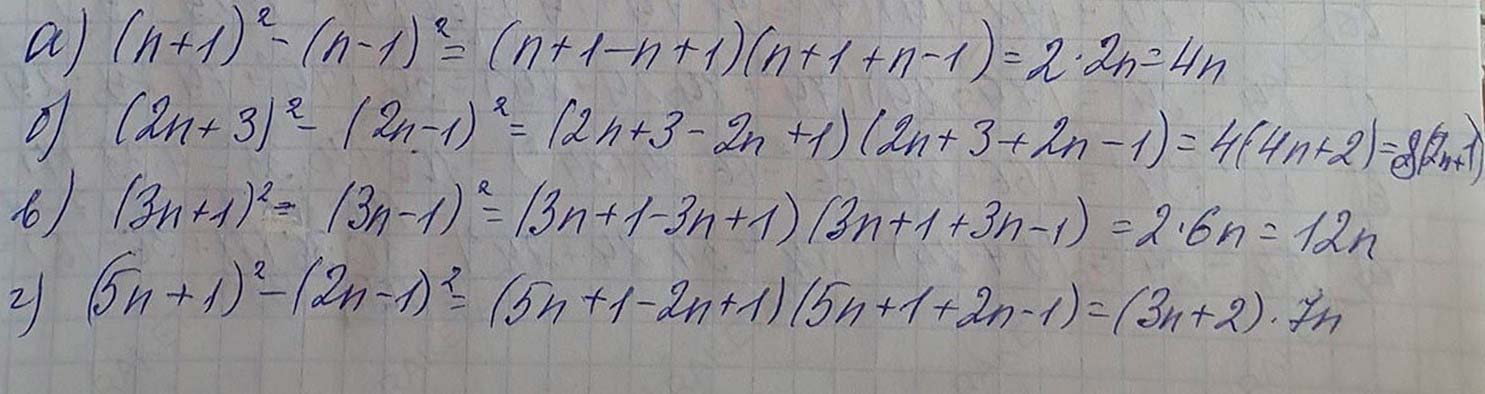 а) (n+1)²-(n-1)²= (n+1-n+1)(n+1+n-1)=2·2n=4n
б) (2n+3)²-(2n-1)²=(2n+3-2n+1)(2n+3+2n-1)=4(4n+2)=8(2n+1)
в) (3n+1)²-(3n-1)²=(3n+1-3n+1)(3n+1+3n-1)=2·6n=12n
г) (5n+1)²-(2n-1)²=(5n+1-2n+1)(5n+1+2n-1)=(3n+2)·7n